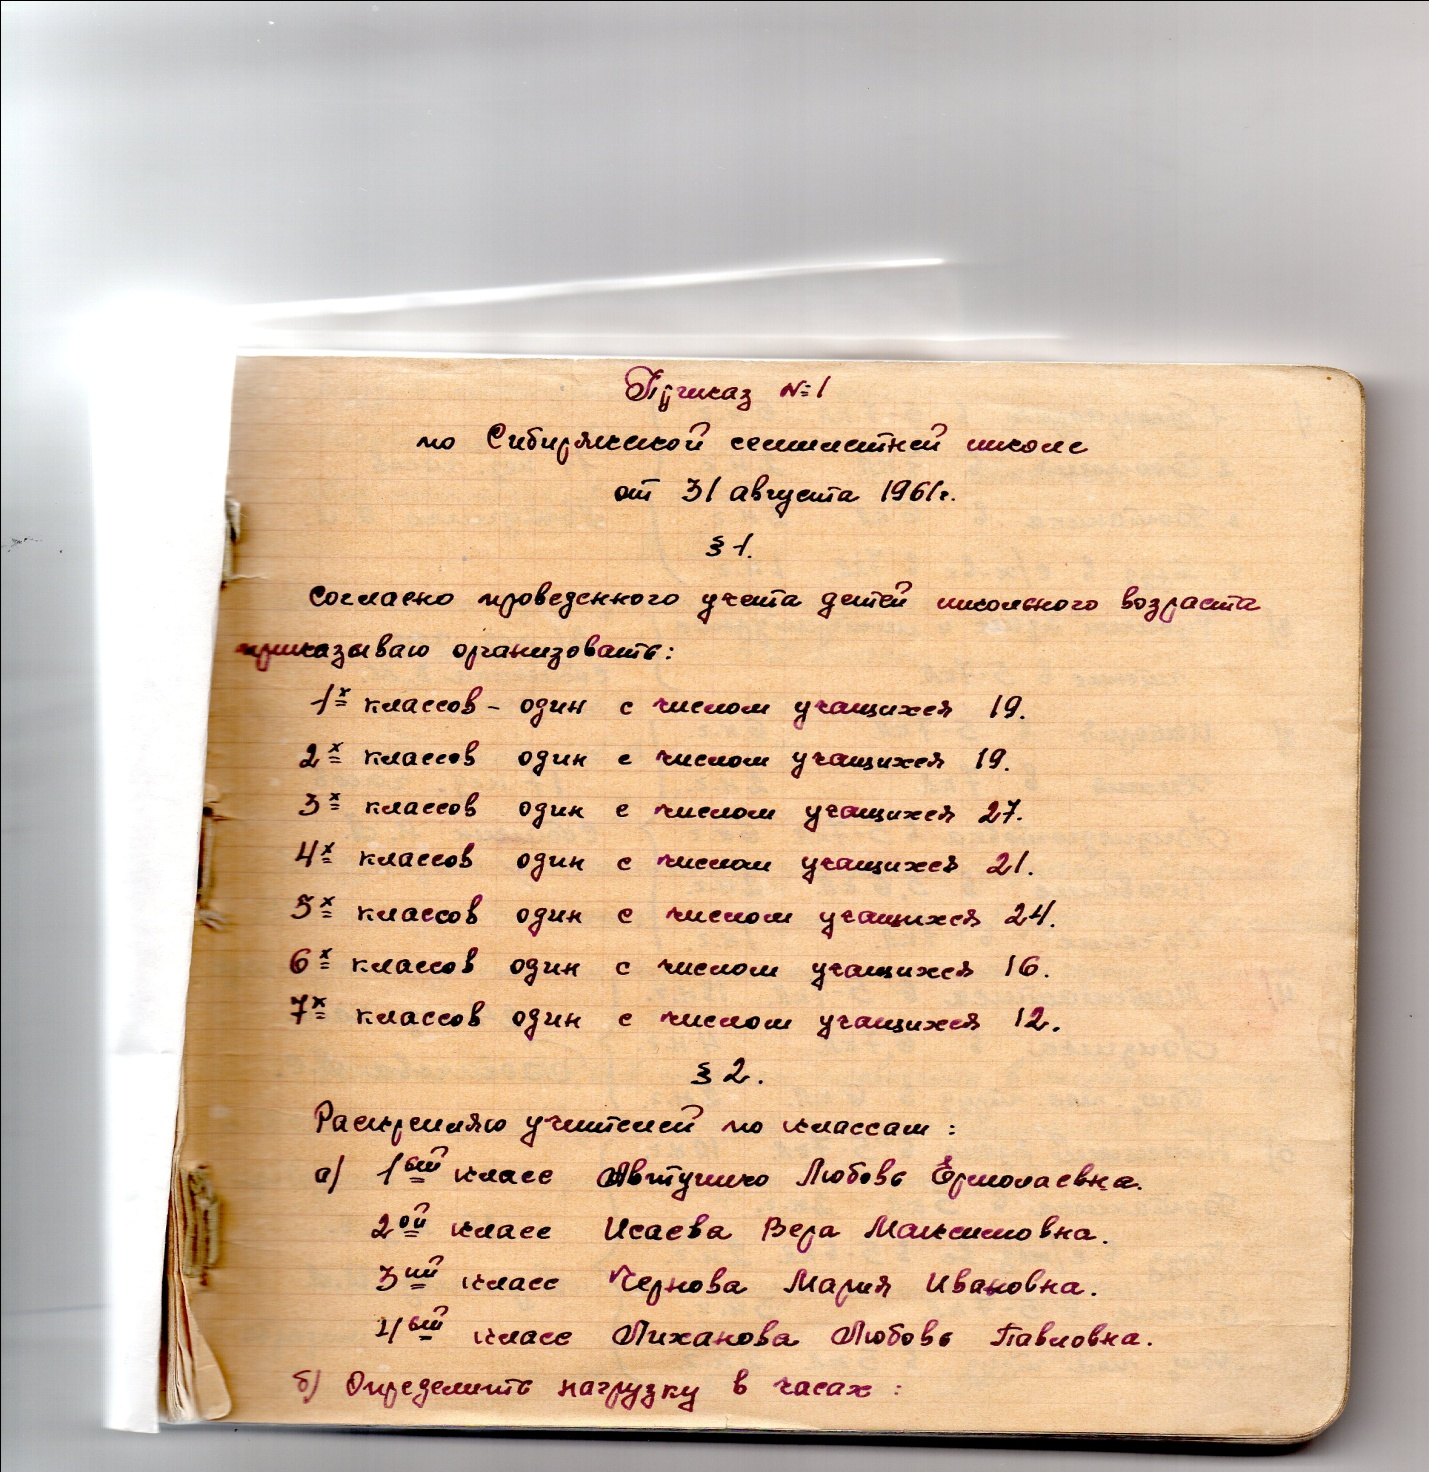 Приказ №1
по Сибирякской семилетней школе
от 31 августа 1961г.
§ 1.
Согласно проведенного учета детей школьного возраста
приказываю организовать:
1х классов - один с числом учащихся 19.
2х классов один с числом учащихся 19.
3х классов один с числом учащихся 27.
4х классов один с числом учащихся 21.
5х классов один с числом учащихся 24.
6х классов один с числом учащихся 16.
7х классов один с числом учащихся 12.
§ 2.
Раскрепляю учителей по классам:
а) 1ый класс Автушко Любовь Ермолаевна.
2ой класс Исаева Вера Максимовна.
3ий класс Чернова Мария Ивановна.
4ый класс Лиханова Любовь Павловна.
б) Определить нагрузку в часах: